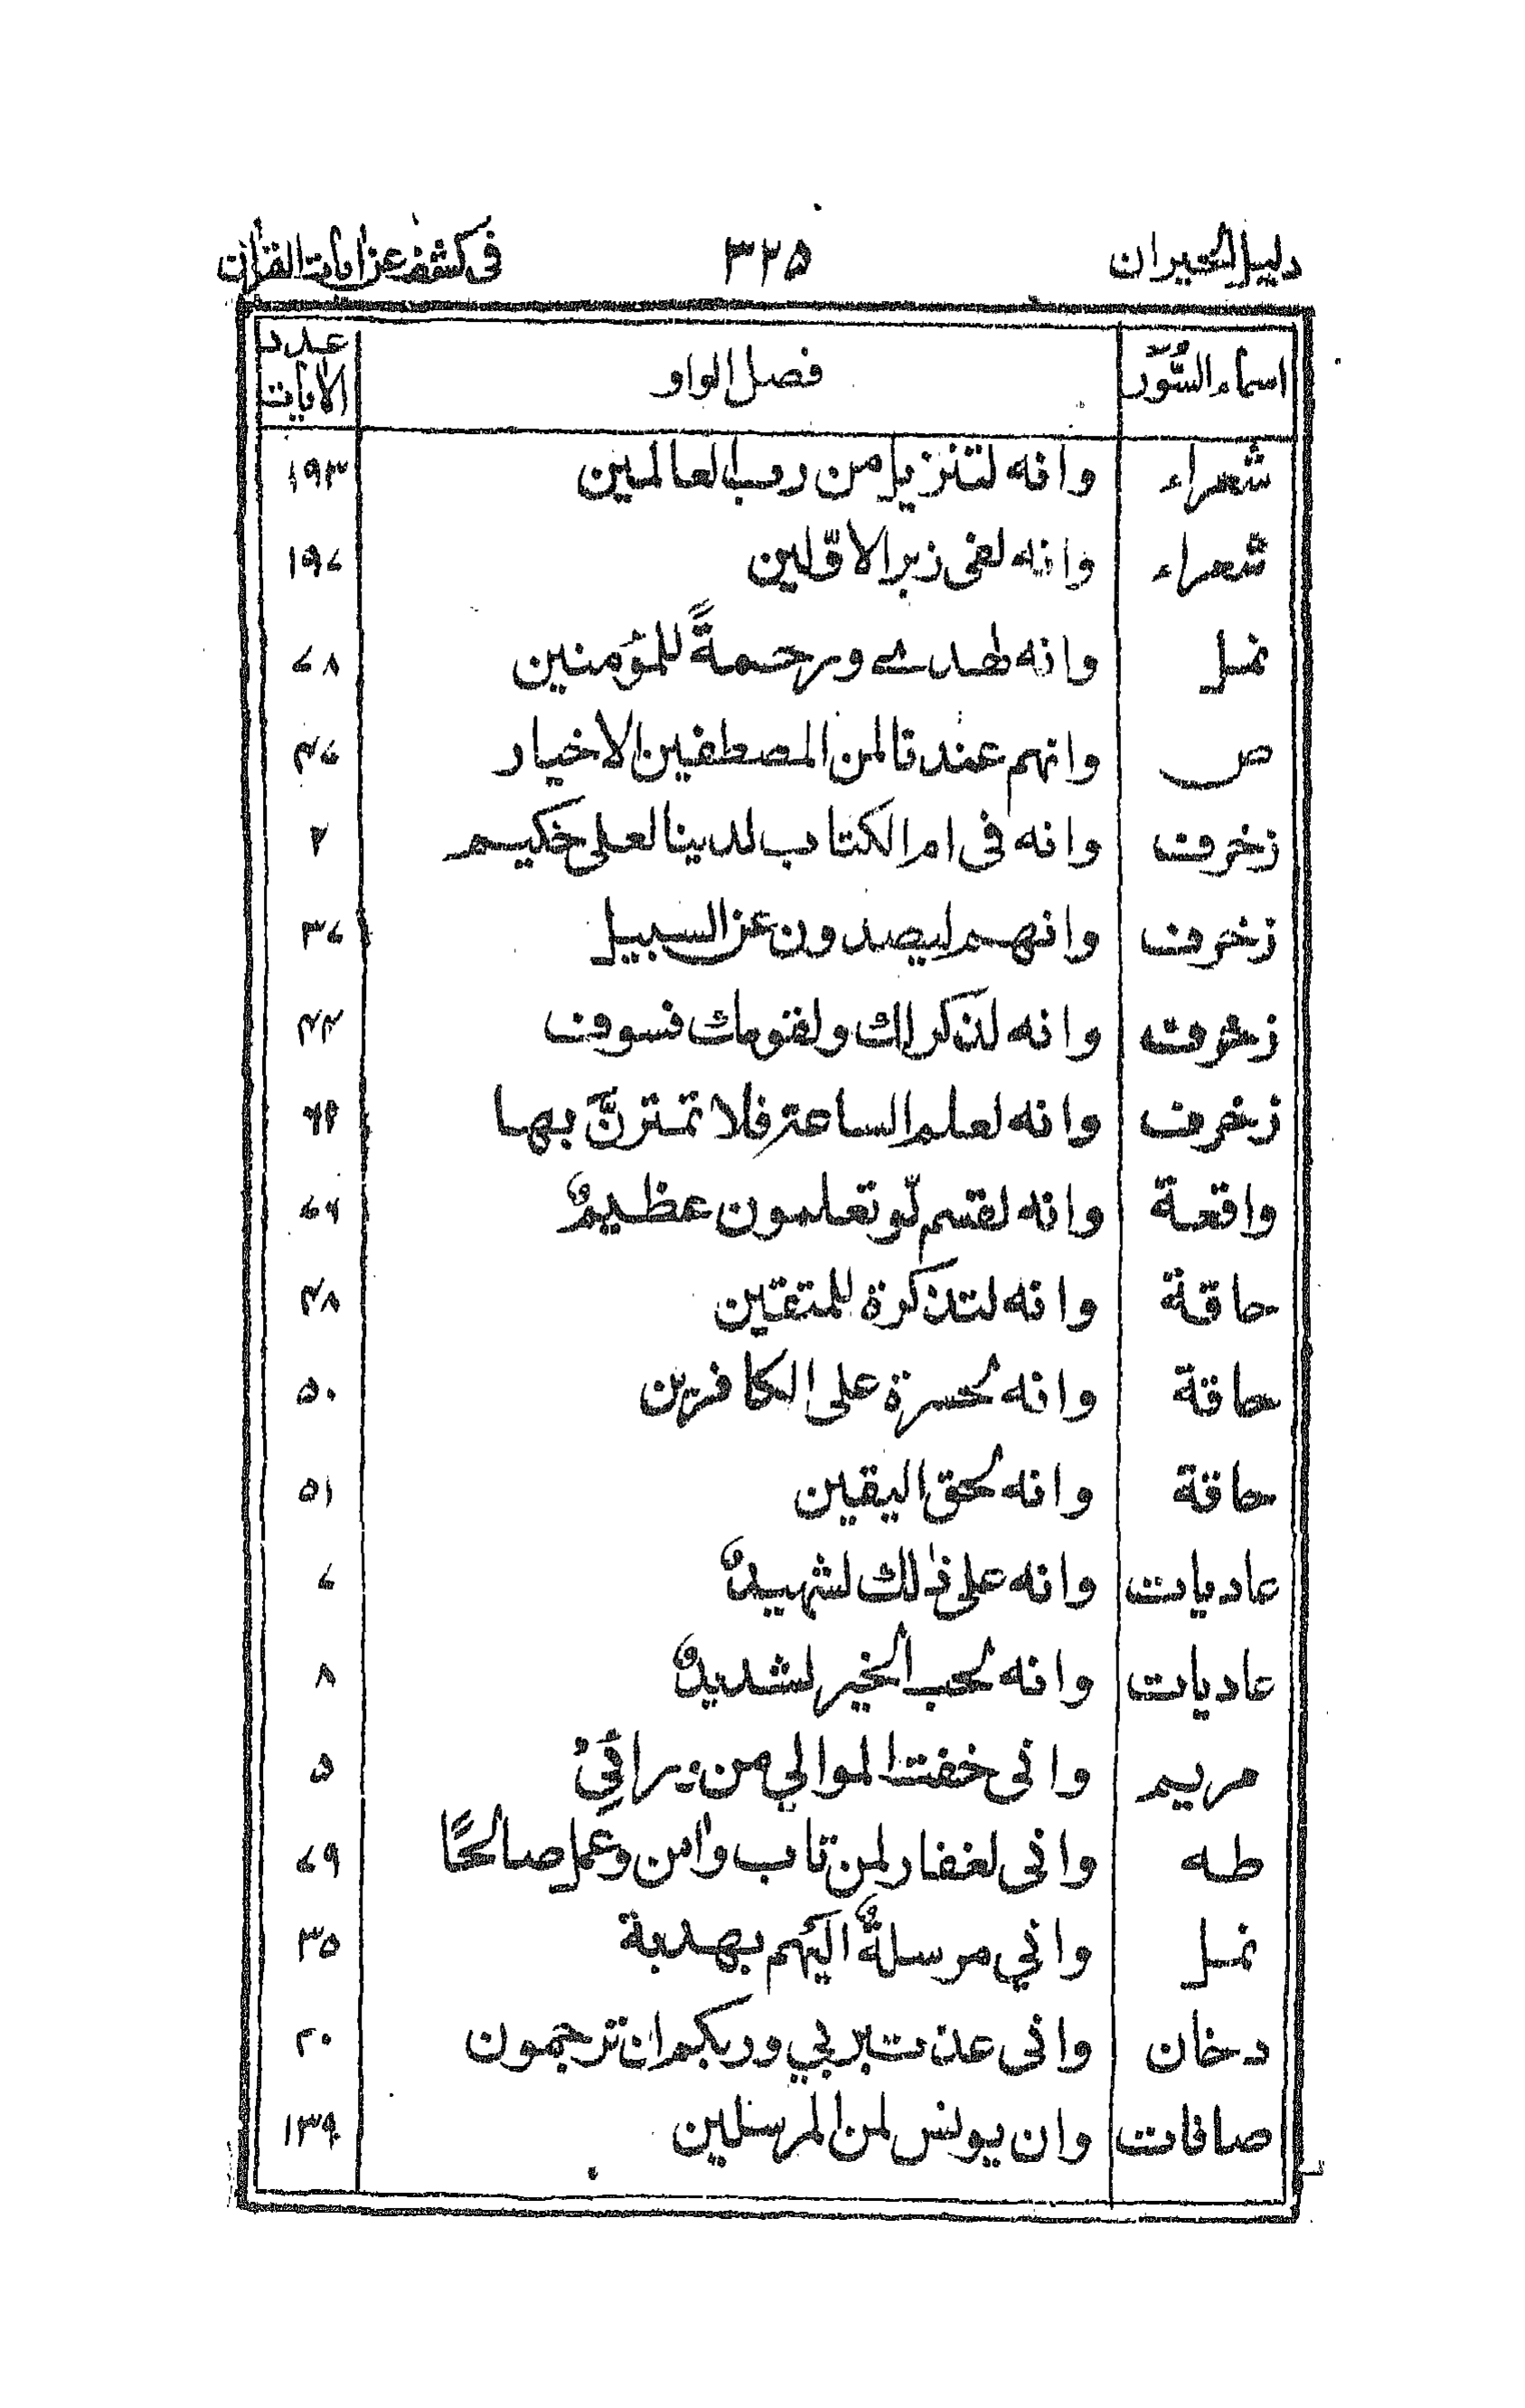 دليل الحيران ٣٢٥ في كشف عن ايات القرآن
اسماء السُّوَر فصل الواو عدد الآيات
شعراء وانه لتنزيل من رب العالمين ١٩٣
شعراء وانه لفى زبر الاوّلين ١٩٧
نمل وانه لهدى ورحمةً للمؤمنين ٧٨
ص وانهم عندنا لمن المصطفين الاخيار ٤٧
زخرف وانه فى ام الكتاب لدينا لعلى حكيم ٣
زخرف وانهم ليصدون عن السبيل ٣٧
زخرف وانه لذكر لك ولقومك فسوف ٤٣
زخرف وانه لعلم الساعة فلا تمترنَّ بها ٦١
واقعة وانه لقسم لّو تعلمون عظيمٌ ٧٦
حاقة وانه لتذكرة للمتقين ٤٨
حاقة وانه لحسرة على الكافرين ٥٠
حاقة وانه لحق اليقين ٥١
عاديات وانه على ذٰلك لشهيدٌ ٧
عاديات وانه لحب الخير لشديدٌ ٨
مريم وانى خفت الموالي من ورائي ٥
طه وانى لغفار لمن تاب واٰمن وعمل صالحًا ٧٩
نمل واني مرسلةٌ اليهم بهدية ٣٥
دخان وانى عذت بربي وربكم ان ترجمون ٢٠
صافات وان يونس لمن المرسلين ١٣٩